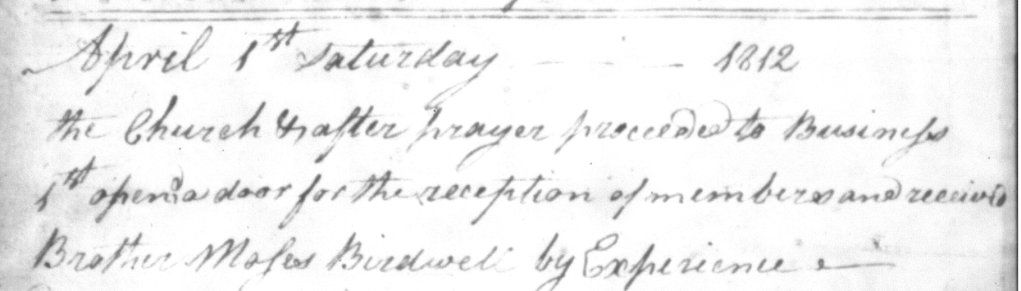 April 1st Saturday - - - 1812
the Church & after prayer proceeded to Business
1st opend a door for the reception of members and received
Brother Moses Birdwell by Experience